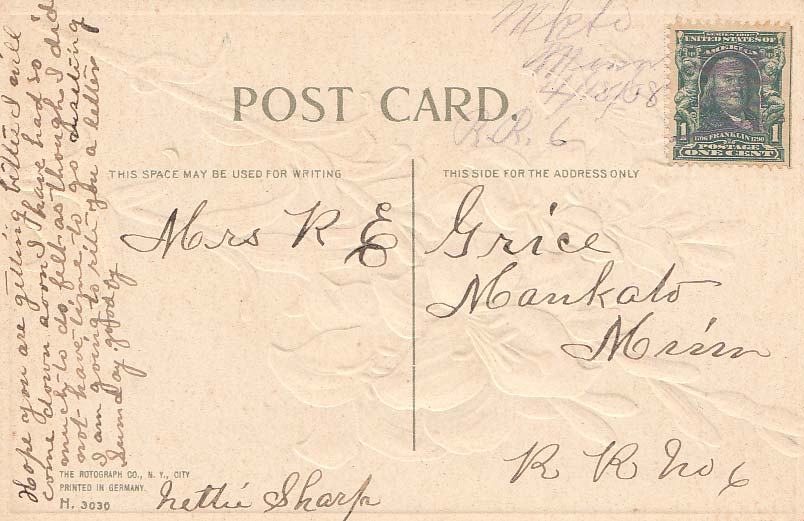 Mkto
Minn
4/15/08
R.R. 6
SERIES 1902
UNITED STATES OF
AMERICA
1 1706 FRANKLIN 1790 1
POSTAGE
ONE CENT
POST CARD.
THIS SPACE MAY BE USED FOR WRITING
THIS SIDE FOR THE ADDRESS ONLY
Mrs R E Grice
Mankato
Minn
R R No 6
Hope you are getting better I will
come down soon I have had so
much to do, felt as though I did
not have time to go visiting
I am going to rite you a letter
sumday goodby
Nettie Sharp
THE ROTOGRAPH CO., N. Y., CITY
PRINTED IN GERMANY.
H. 3030